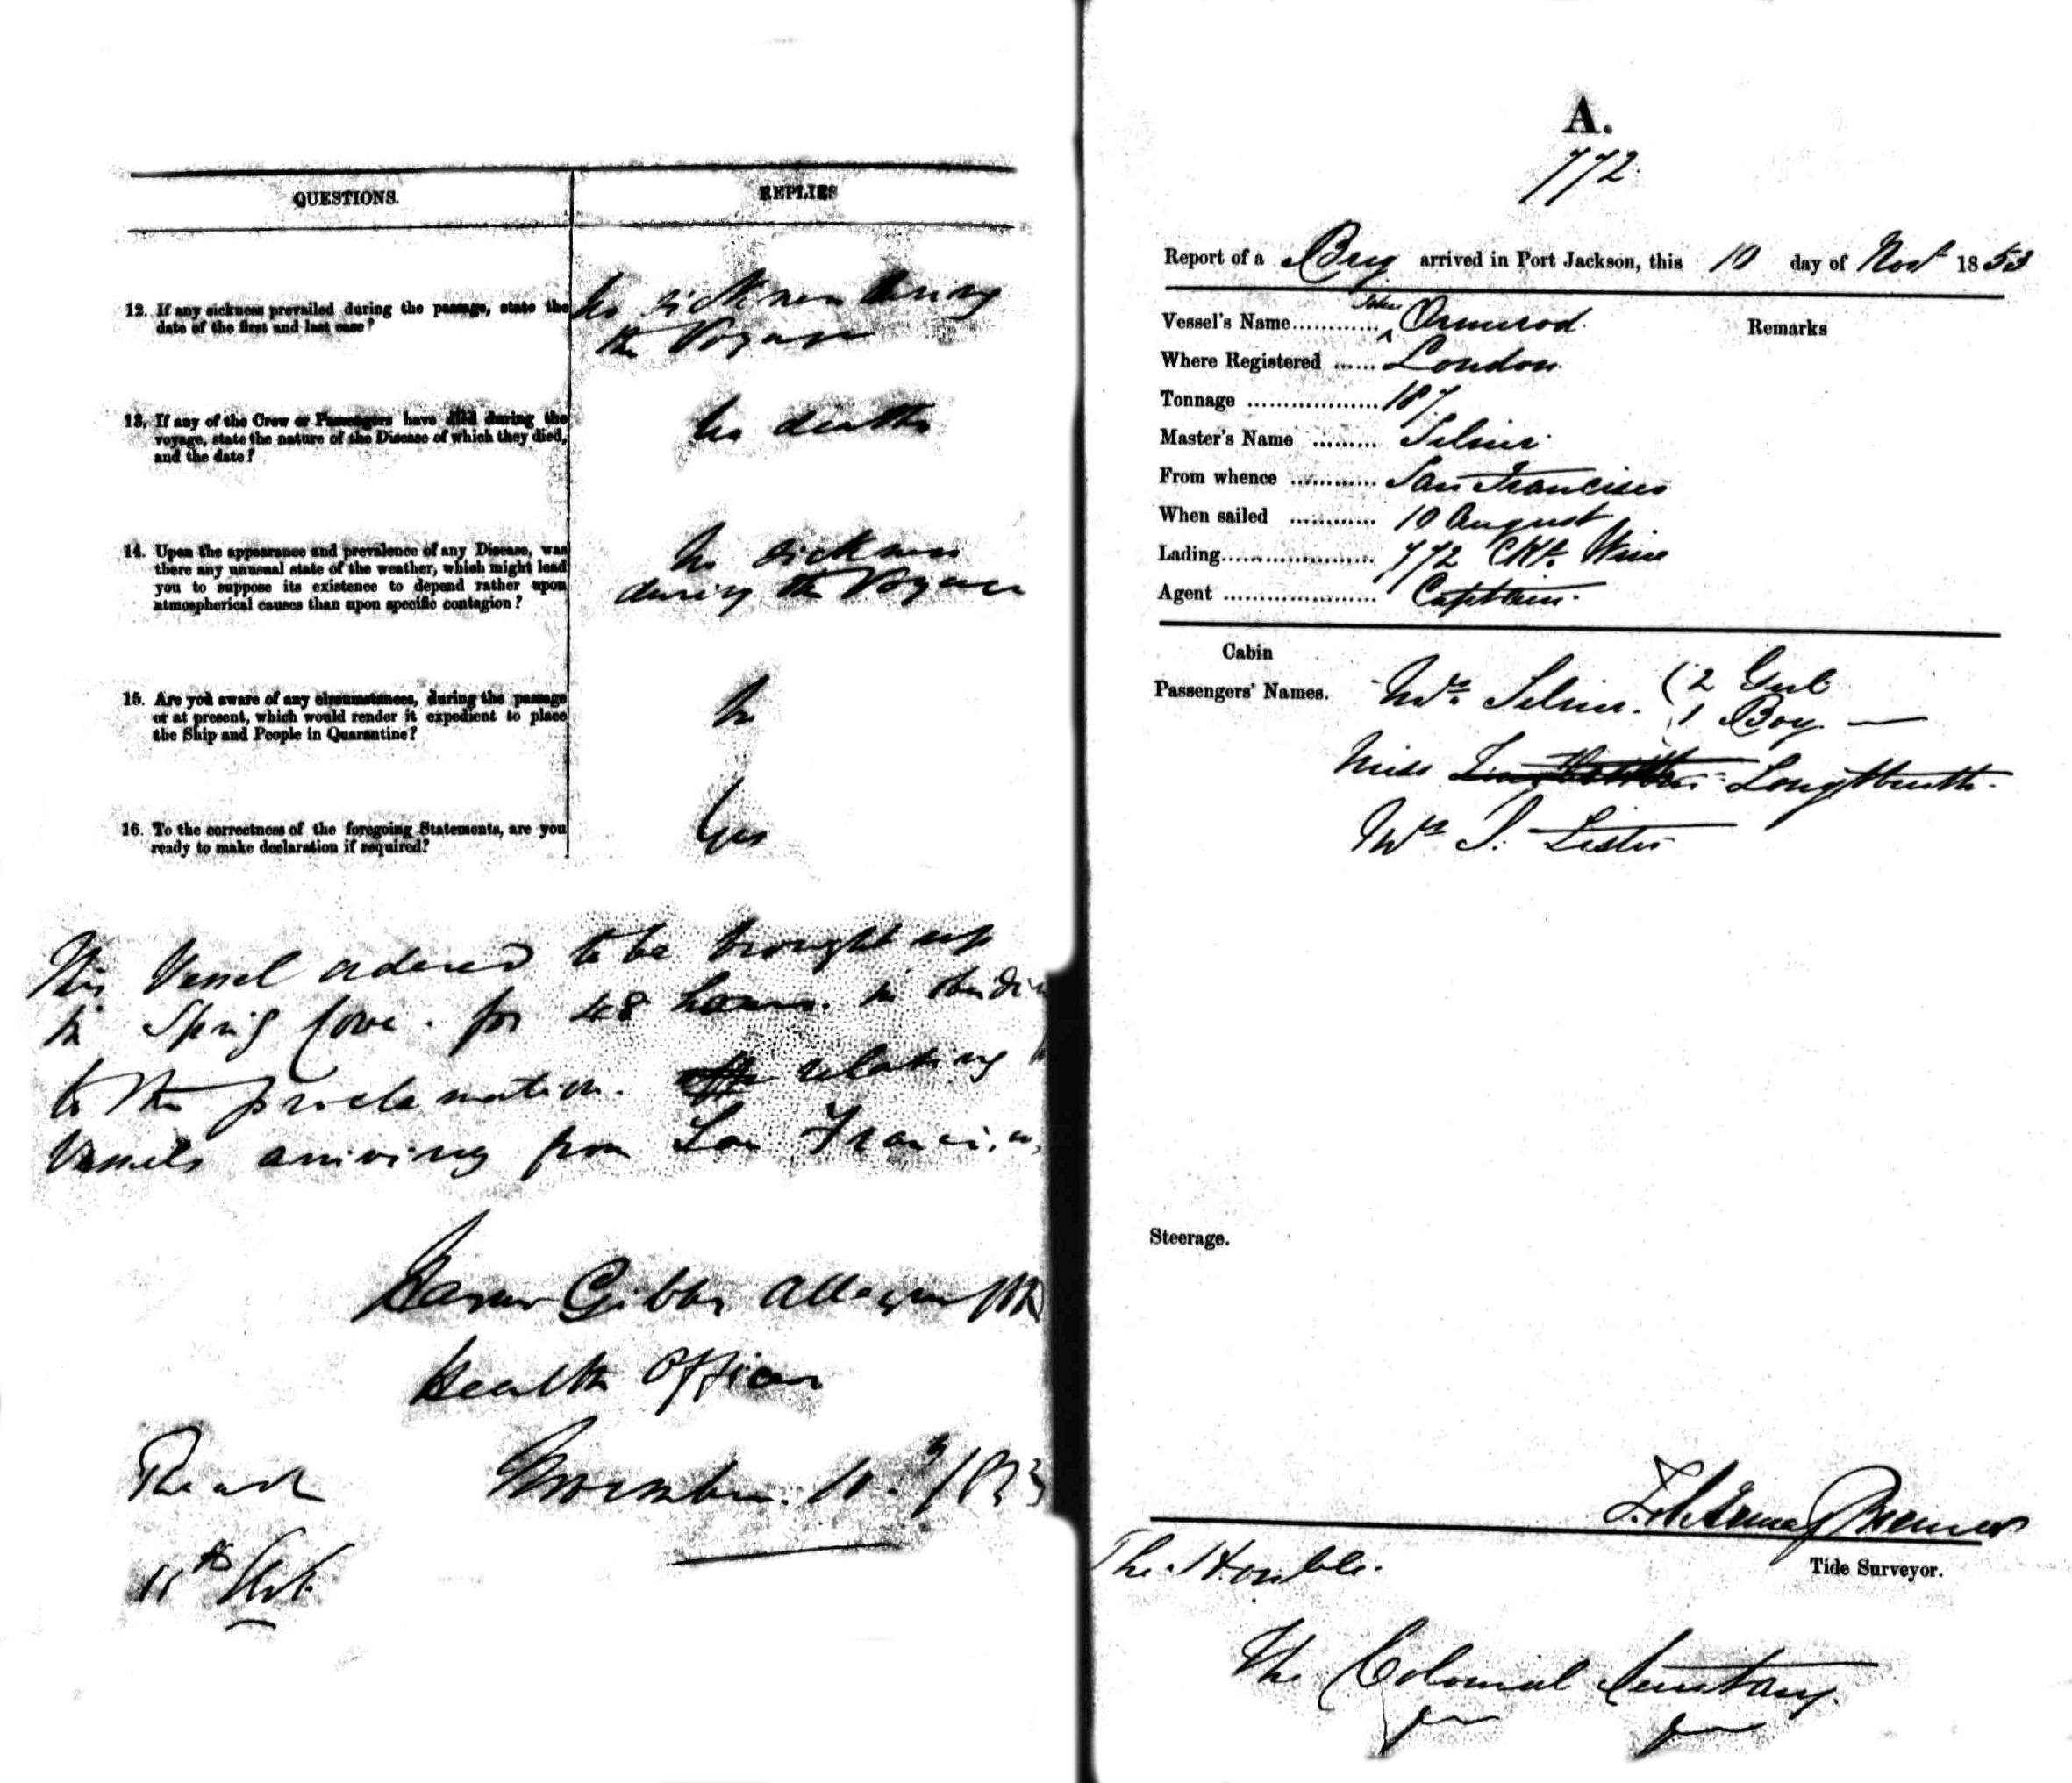 QUESTIONS.
REPLIES
12. If any sickness prevailed during the passage, state the
date of the first and last case?
No sickness during
the Voyage
13. If any of the Crew or Passengers have died during the
voyage, state the nature of the Disease of which they died,
and the date?
No deaths
14. Upon the appearance and prevalence of any Disease, was
there any unusual state of the weather, which might lead
you to suppose its existence to depend rather upon
atmospherical causes than upon specific contagion?
No sickness
during the Voyage
15. Are you aware of any circumstances, during the passage
or at present, which would render it expedient to place
the Ship and People in Quarantine?
No
16. To the correctness of the foregoing Statements, are you
ready to make declaration if required?
Yes
This Vessel ordered to be brought up
in Spring Cove. for 48 hours. in
to the proclamation. relating
Vessels arriving from San Francisco
Gibbs Alleyne MD
Health Officer
November. 10.th 1853
Read
11th
A.
772.
Report of a Brig arrived in Port Jackson, this 10 day of Novr 1853
Vessel's Name............ John Ormerod.
Remarks
Where Registered ...... London.
Tonnage .................. 187
Master's Name .........
From whence ............ San Francisco
When sailed ............ 10 August
Lading..................... 772 Wine
Agent ..................... Captain.
Cabin
Passengers' Names. Mrs (2 Girls
1 Boy. —
Miss Longbottom.
Mrs Lister
Steerage.
Tide Surveyor.
The Honble.
The Colonial Secretary